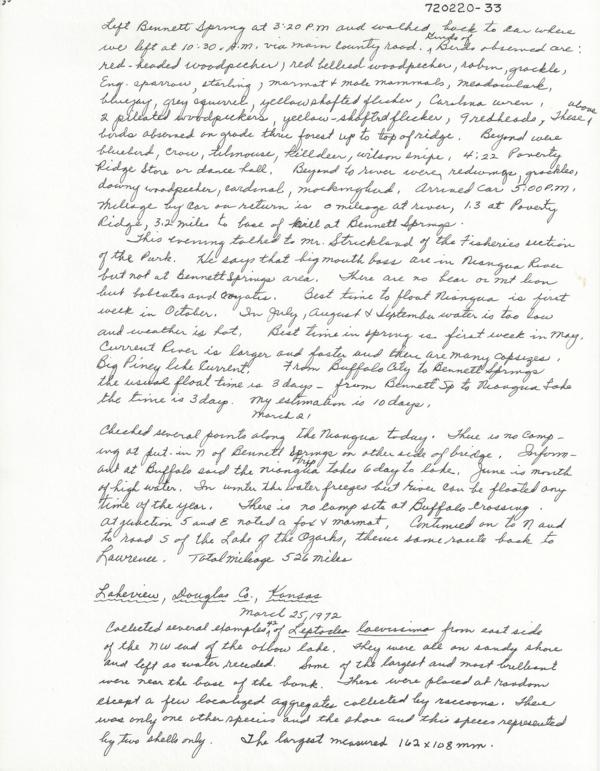 720220-33
Left Bennett Spring at 3:20 P.M and walked back to car where
we left at 10:30 A.M. via main county road. Kinds of Birds observed are:
red-headed woodpecker, red bellied woodpecker, robin, grackle,
Eng. sparrow, starling, marmot & mole mammals, meadowlark,
bluejay, grey squirrel, yellow shafted flicker, Carolina wren,
2 pileated woodpeckers, yellow-shafted flicker, 9 redheads, These above
birds observed on grade thru forest up to top of ridge. Beyond were
bluebird, crow, titmouse, killdeer, wilson snipe, 4:22 Poverty
Ridge Store or dance hall. Beyond to river were redwings, grackles,
downy woodpecker, cardinal, mockingbird. Arrived car 5:00 P.M.
Mileage by car on return is 0 mileage at river, 1.3 at Poverty
Ridge, 3.2 miles to base of hill at Bennett Springs.
This evening talked to Mr. Strickland of the Fisheries section
of the Park. He says that big mouth bass are in Niangua River
but not at Bennett Springs area. There are no bear or mt lion
but bobcats and coyotes. Best time to float Niangua is first
week in October. In July, August & September water is too low
and weather is hot. Best time in spring is first week in May.
Current River is larger and faster and there are many capsizes.
Big Piney like Current. From Buffalo City to Bennett Springs
the usual float time is 3 days - from Bennett Sp to Niangua Lake
the time is 3 days. My estimation is 10 days.
March 21
Checked several points along the Niangua today. There is no camp-
ing at put-in N of Bennett Springs on other side of bridge. Inform-
ant at Buffalo said the Niangua trip takes 6 day to lake. June is month
of high water. In winter the water freezes but river can be floated any
time of the year. There is no camp site at Buffalo Crossing.
At junction 5 and E noted a fox & marmat. Continued on to N and
to road S of the Lake of the Ozarks, thence same route back to
Lawrence. Total mileage 526 miles
Lakeview, Douglas Co., Kansas
March 25, 1972
Collected several examples 42 of Leptodea laevissima from east side
of the NW end of the oxbow lake. They were all on sandy shore
and left as water receded. Some of the largest and most brilliant
were near the base of the bank. There were placed at random
except a few localized aggregates collected by raccoons. There
was only one other species and the shore and this species represented
by two shells only. The largest measured 162 x 108 mm.